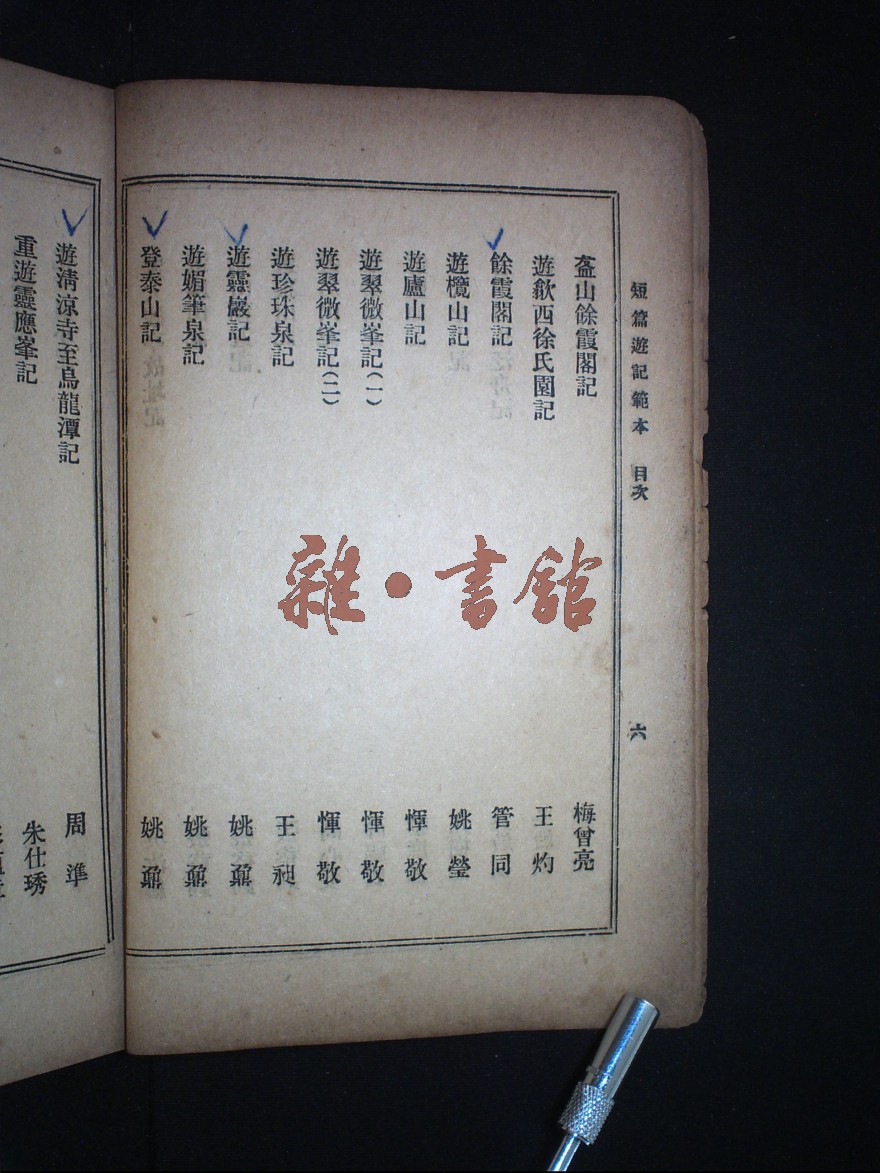 短篇遊記範本 目次 六
盋山餘霞閣記 梅曾亮
遊歙西徐氏園記 王灼
餘霞閣記 管同
遊欖山記 姚瑩
遊廬山記 惲敬
遊翠微峯記(一) 惲敬
遊翠微峯記(二) 惲敬
遊珍珠泉記 王昶
遊靈巖記 姚鼐
遊媚筆泉記 姚鼐
登泰山記 姚鼐
遊清涼寺至烏龍潭記 周準
重遊靈應峯記 朱仕琇
雜·書館